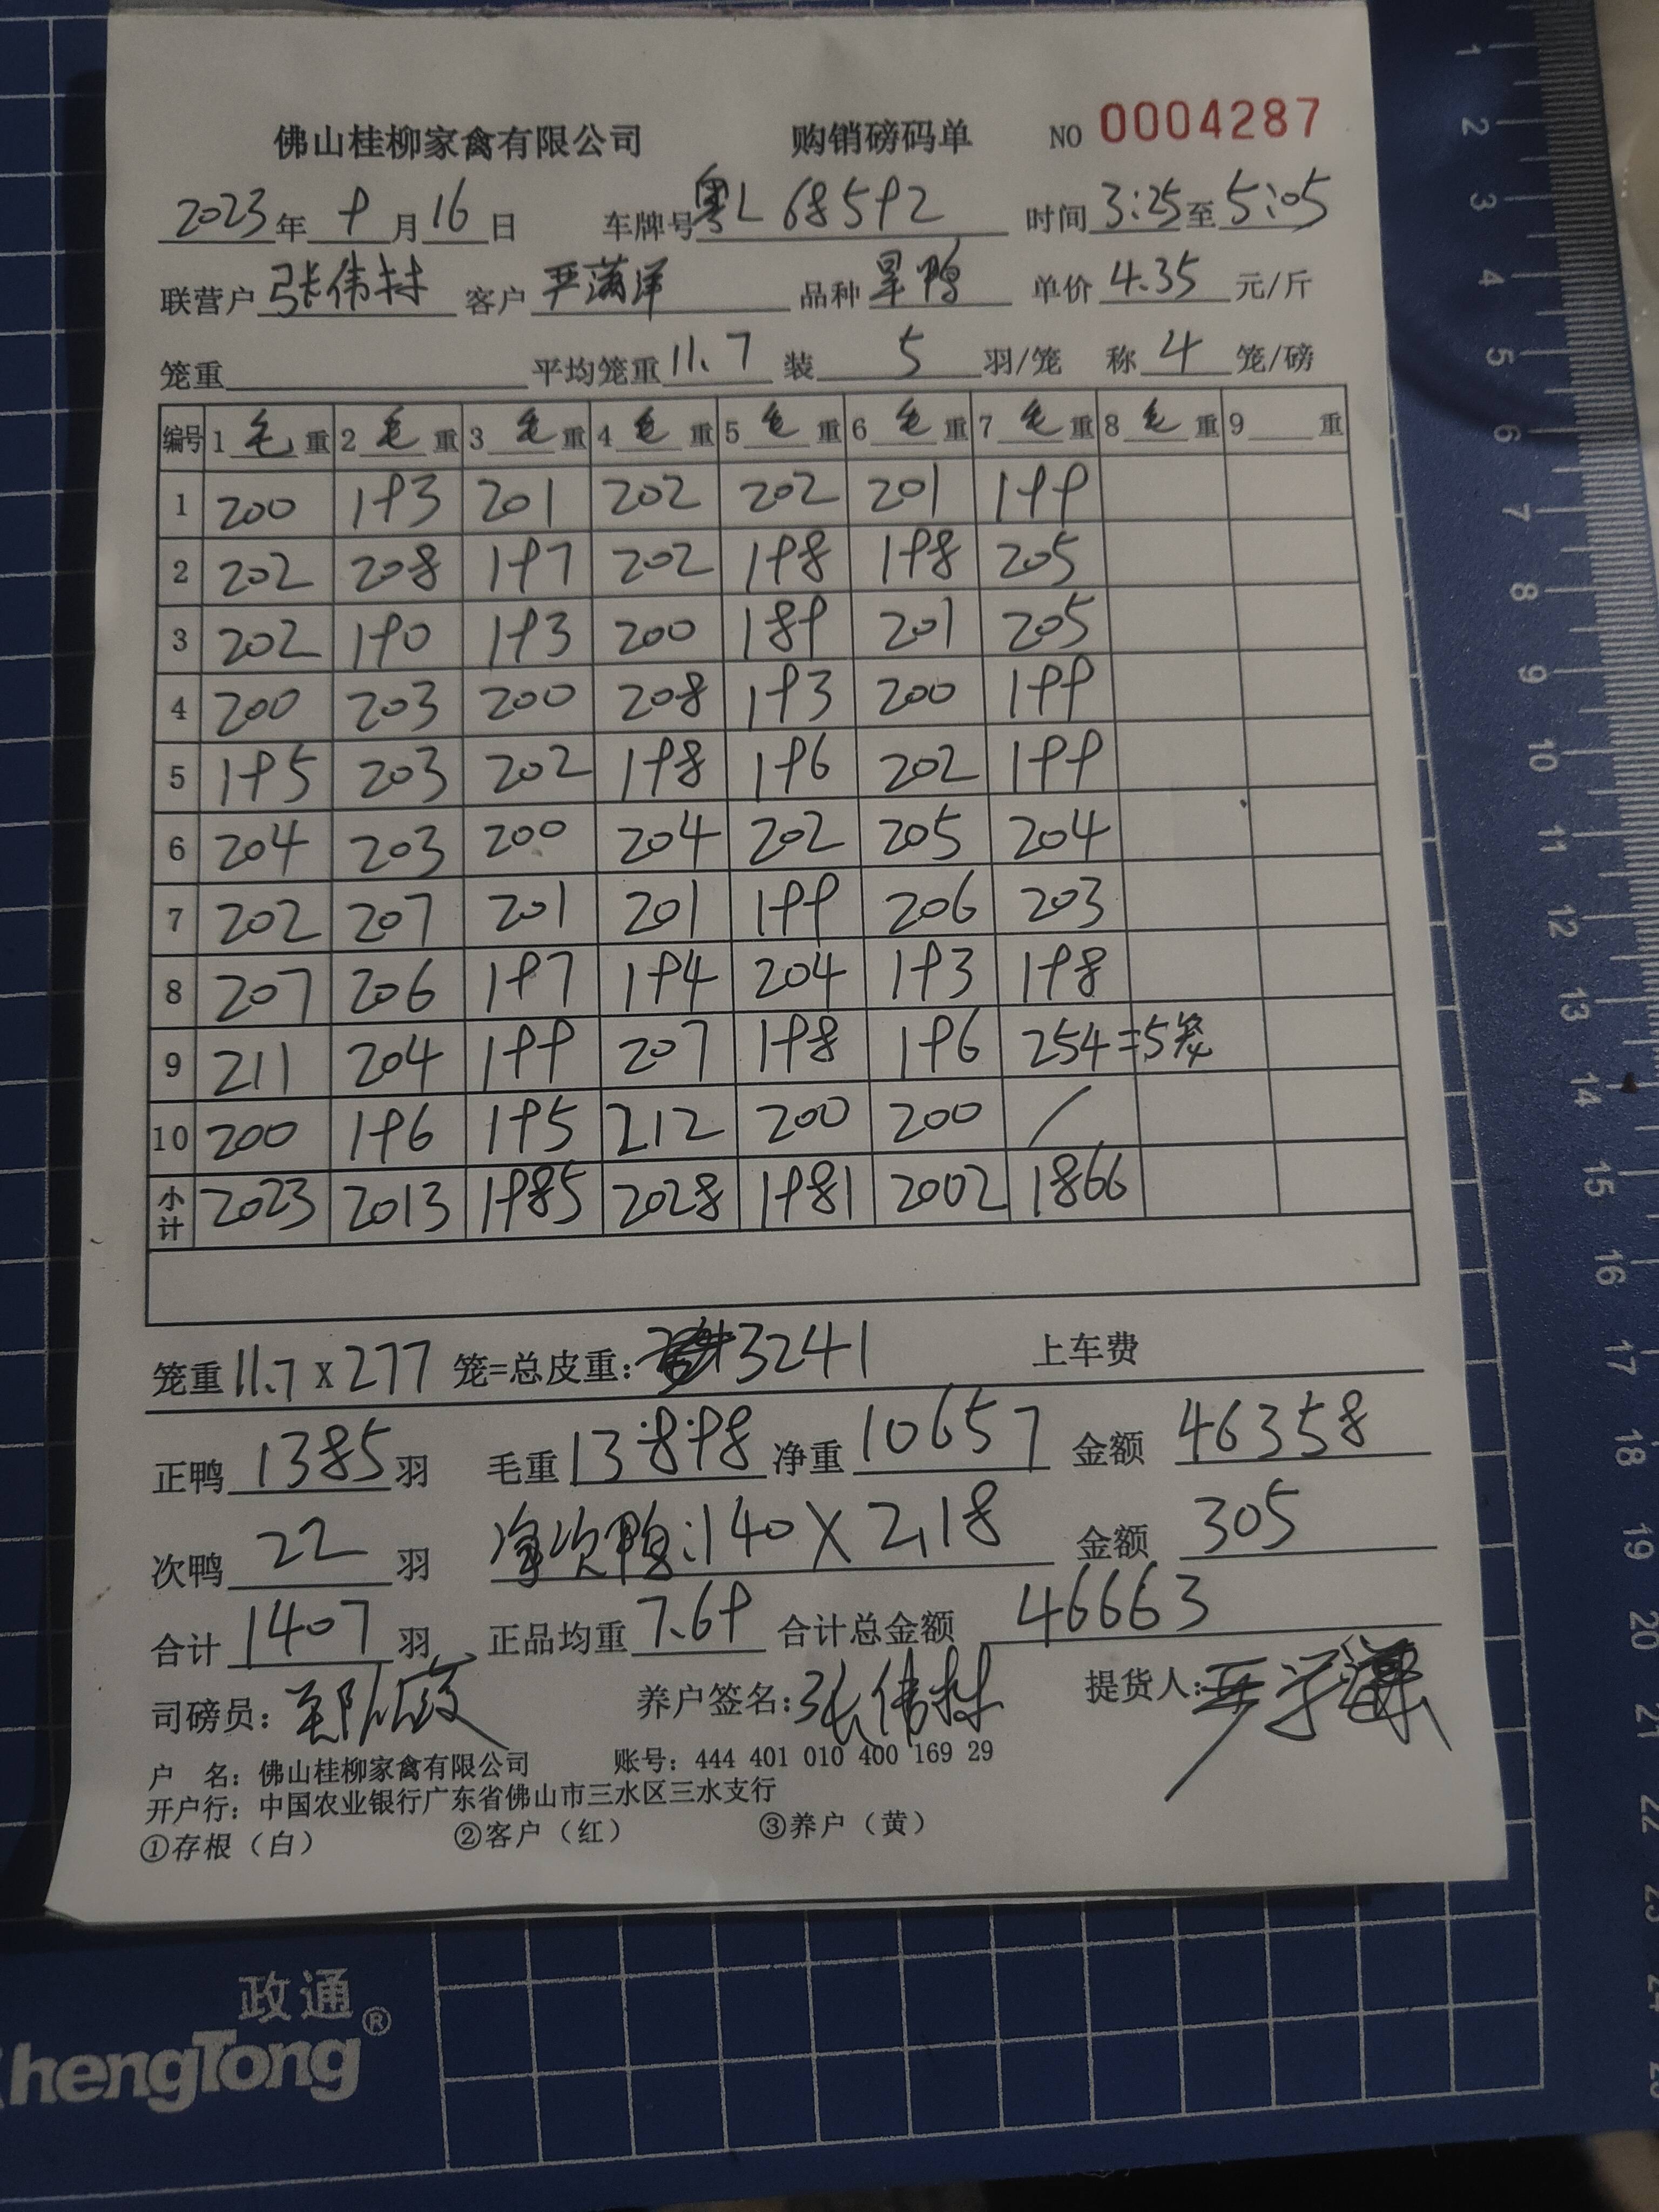 佛山桂柳家禽有限公司 购销磅码单 NO 0004287
2023年 9月16日 车牌号粤L 68592 时间3:25至5:05
联营户张伟林 客户严满洋 品种旱鸭 单价4.35元/斤
笼重 平均笼重11.7 装5羽/笼 称4笼/磅
编号 1毛重 2毛重 3毛重 4毛重 5毛重 6毛重 7毛重 8毛重 9 重
1 200 193 201 202 202 201 199
2 202 208 197 202 198 198 205
3 202 190 193 200 189 201 205
4 200 203 200 208 193 200 199
5 195 203 202 198 196 202 199
6 204 203 200 204 202 205 204
7 202 207 201 201 199 206 203
8 207 206 197 194 204 193 198
9 211 204 199 207 198 196 254=5笼
10 200 196 195 212 200 200 /
小计 2023 2013 1985 2028 1981 2002 1866
笼重11.7x277笼=总皮重:3241 上车费
正鸭1385羽 毛重13898 净重10657 金额46358
次鸭22羽 净次鸭:140X2.18 金额305
合计1407羽 正品均重7.69 合计总金额46663
司磅员: 养户签名:张伟林 提货人:
户 名:佛山桂柳家禽有限公司 账号:444 401 010 400 169 29
开户行:中国农业银行广东省佛山市三水区三水支行
①存根(白) ②客户(红) ③养户(黄)
1
2
3
4
5
6
7
8
9
10
11
12
13
14
15
16
17
18
19
20
21
22
23
24
25
政通®
hengTong